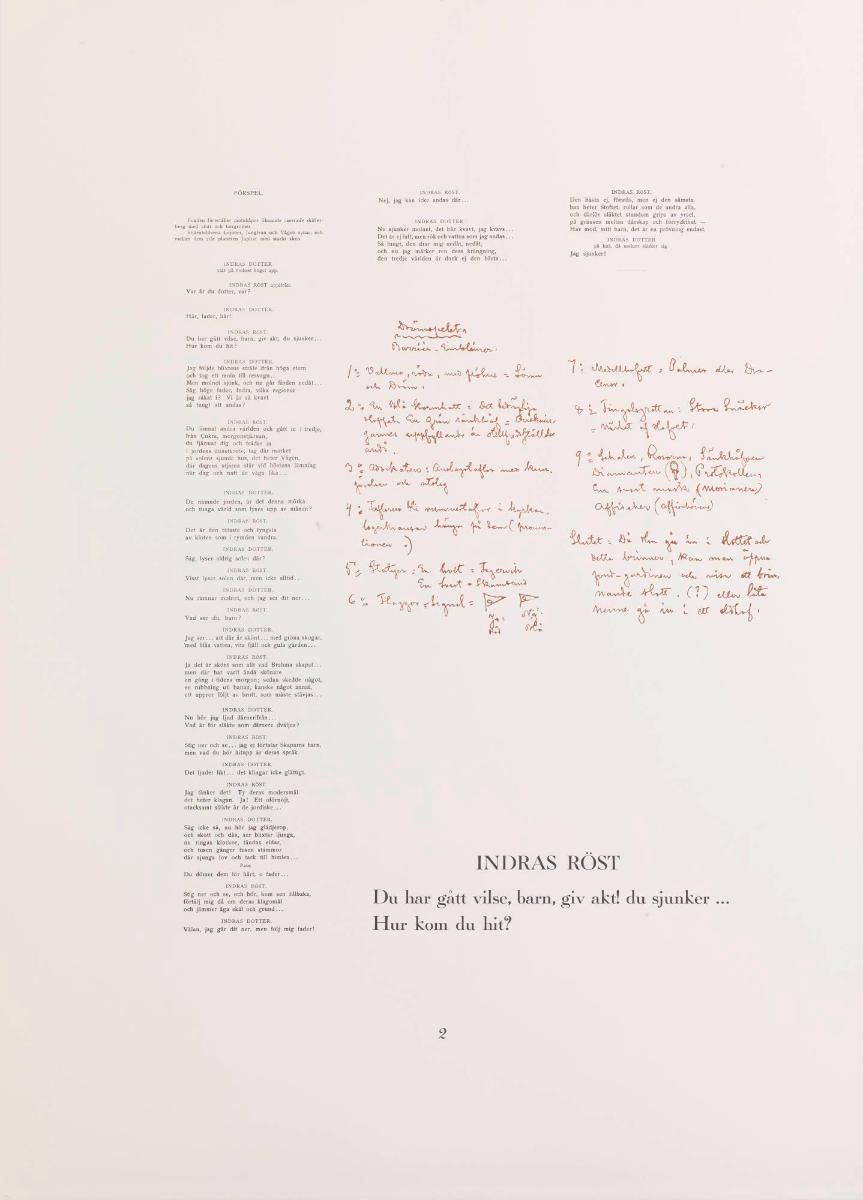 FÖRSPEL.
Fonden föreställer molnkåpor liknande raserade skiffer-
berg med slott och borgruiner.
Stjärnbilderna Lejonet, Jungfrun och Vågen synas, och
mellan dem står planeten Jupiter med starkt sken.
INDRAS DOTTER.
står på molnet högst upp.
INDRAS RÖST uppifrån.
Var är du dotter, var?
INDRAS DOTTER.
Här, fader, här!
INDRAS RÖST.
Du har gått vilse, barn, giv akt, du sjunker...
Hur kom du hit?
INDRAS DOTTER.
Jag följde blixtens stråle ifrån höga etern
och tog ett moln till resvagn...
Men molnet sjönk, och nu går färden nedåt...
Säg höge fader, Indra, vilka regioner
jag råkat i? Vi är så kvavt
så tungt att andas?
INDRAS RÖST.
Du lämnat andra världen och gått in i tredje,
från Çukra, morgonstjärnan,
du fjärmat dig och träder in
i jordens dunstkrets; tag där märket
på solens sjunde hus, det heter Vågen,
där dagens stjärna står vid höstens jämning
när dag och natt är väga lika...
INDRAS DOTTER.
Du nämnde jorden, är det denna mörka
och tunga värld som lyses upp av månen?
INDRAS RÖST.
Det är den tätaste och tyngsta
av kloten som i rymden vandra.
INDRAS DOTTER.
Säg, lyser aldrig solen där?
INDRAS RÖST.
Visst lyser solen där, men icke alltid...
INDRAS DOTTER.
Nu rämnar molnet, och jag ser dit ner...
INDRAS RÖST.
Vad ser du, barn?
INDRAS DOTTER.
Jag ser... att där är skönt... med gröna skogar,
med blåa vatten, vita fjäll och gula gärden...
INDRAS RÖST.
Ja det är skönt som allt vad Brahma skapat...
men där har varit ändå skönare
en gång i tidens morgon; sedan skedde något,
en rubbning uti banan, kanske något annat,
ett uppror följt av brott, som måste stävjas...
INDRAS DOTTER.
Nu hör jag ljud därnerifrån...
Vad är för släkte som därnere dväljes?
INDRAS RÖST.
Stig ner och se... jag ej förtalar Skaparns barn,
men vad du hör hitupp är deras språk.
INDRAS DOTTER.
Det ljuder likt... det klingar icke glättigt.
INDRAS RÖST.
Jag tänker det! Ty deras modersmål
det heter klagan. Ja! Ett oförnöjt,
otacksamt släkte är de jordiske...
INDRAS DOTTER.
Säg icke så, nu hör jag glädjerop,
och skott och dån, ser blixtar ljunga,
nu ringas klockor, tändas eldar,
och tusen gånger tusen stämmor
där sjunga lov och tack till himlen...
Paus.
Du dömer dem för hårt, o fader...
INDRAS RÖST.
Stig ner och se, och hör, kom sen tillbaka,
förtälj mig då om deras klagomål
och jämmer äga skäl och grund...
INDRAS DOTTER.
Välan, jag går dit ner, men följ mig fader!
INDRAS RÖST.
Nej, jag kan icke andas där...
INDRAS DOTTER.
Nu sjunker molnet, det blir kvavt, jag kvävs...
Det är ej luft, men rök och vatten som jag andas...
Så tungt, det drar mig nedåt, nedåt,
och nu jag märker ren dess krängning,
den tredje världen är dock ej den bästa...
INDRAS RÖST.
Den bästa ej, förvisst, men ej den sämsta,
han heter Stoftet, rullar som de andra alla,
och därför släktet stundom grips av yrsel,
på gränsen mellan dårskap och förryckthet —
Hav mod, mitt barn, det är en prövning endast
INDRAS DOTTER
på knä, då molnet sänker sig.
Jag sjunker!
Drömspelet.
Barrièr-Emblemer.
1º: Vallmo, röda, med fröhus = Sömn
och Dröm.
2º: En blå Stormhatt:
3º: Advokaten: Anslagstaflor med
4º: Taflorna bli nummertaflor i kyrkan.
Lagerkransar hänga på dem (promo-
tionen.)
5º: Statyer: En hvit = Fagervik
En svart = Skamsund
6º: Flaggor = Signal =
Ja:
Röd
Nej:
Blå
7º: Modelltoffeln, Palmer eller Dra-
cenor.
8º: Fingalsgrottan: Stora Snäckor
9º: Schalen, Rosorna,
Diamanten, Protokollen,
En svart mask (morianen)
Affischer (affischörens)
Slutet: Då Hon går in i Slottet och
detta brinner, kan man öppna
fond-gardinen och visa ett brin-
nande slott. (?) eller låta
henne gå in i ett eldhaf.
INDRAS RÖST
Du har gått vilse, barn, giv akt! du sjunker ...
Hur kom du hit?
2